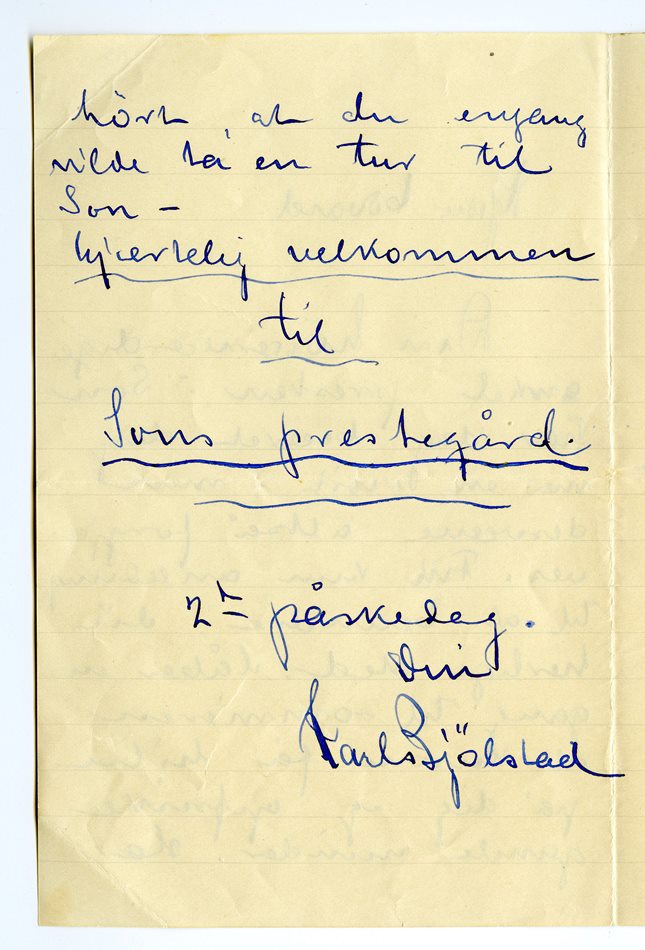 hört, at du engang
vilde ta en tur til
Son –
hjertelig velkommen
til
Sons prestegård.
2n påskedag.
Din
Karl Bjölstad